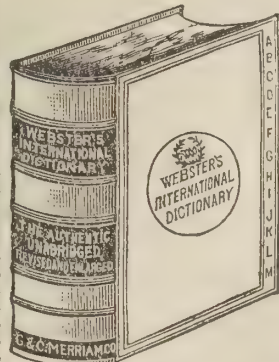 WEBSTER'S
INTERNATIONAL
DICTIONARY
THE AUTHENTIC
UNABRIDGED
REVISED AND ENLARGED
G. & C. MERRIAM CO
WEBSTER'S
INTERNATIONAL
DICTIONARY
A
B
C
D
E
F
G
H
I
K
L
M